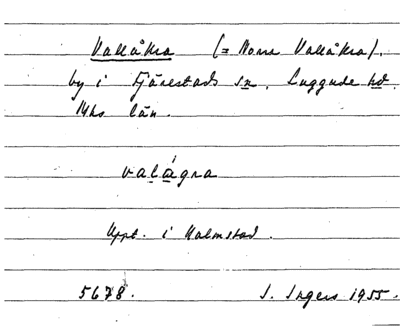 Vallåkra (= Norra Vallåkra).
by i Fjärestads sn, Luggude hd.
Mhs län.
valágra
Uppt. i Halmstad.
5678. I. Ingers 1955.